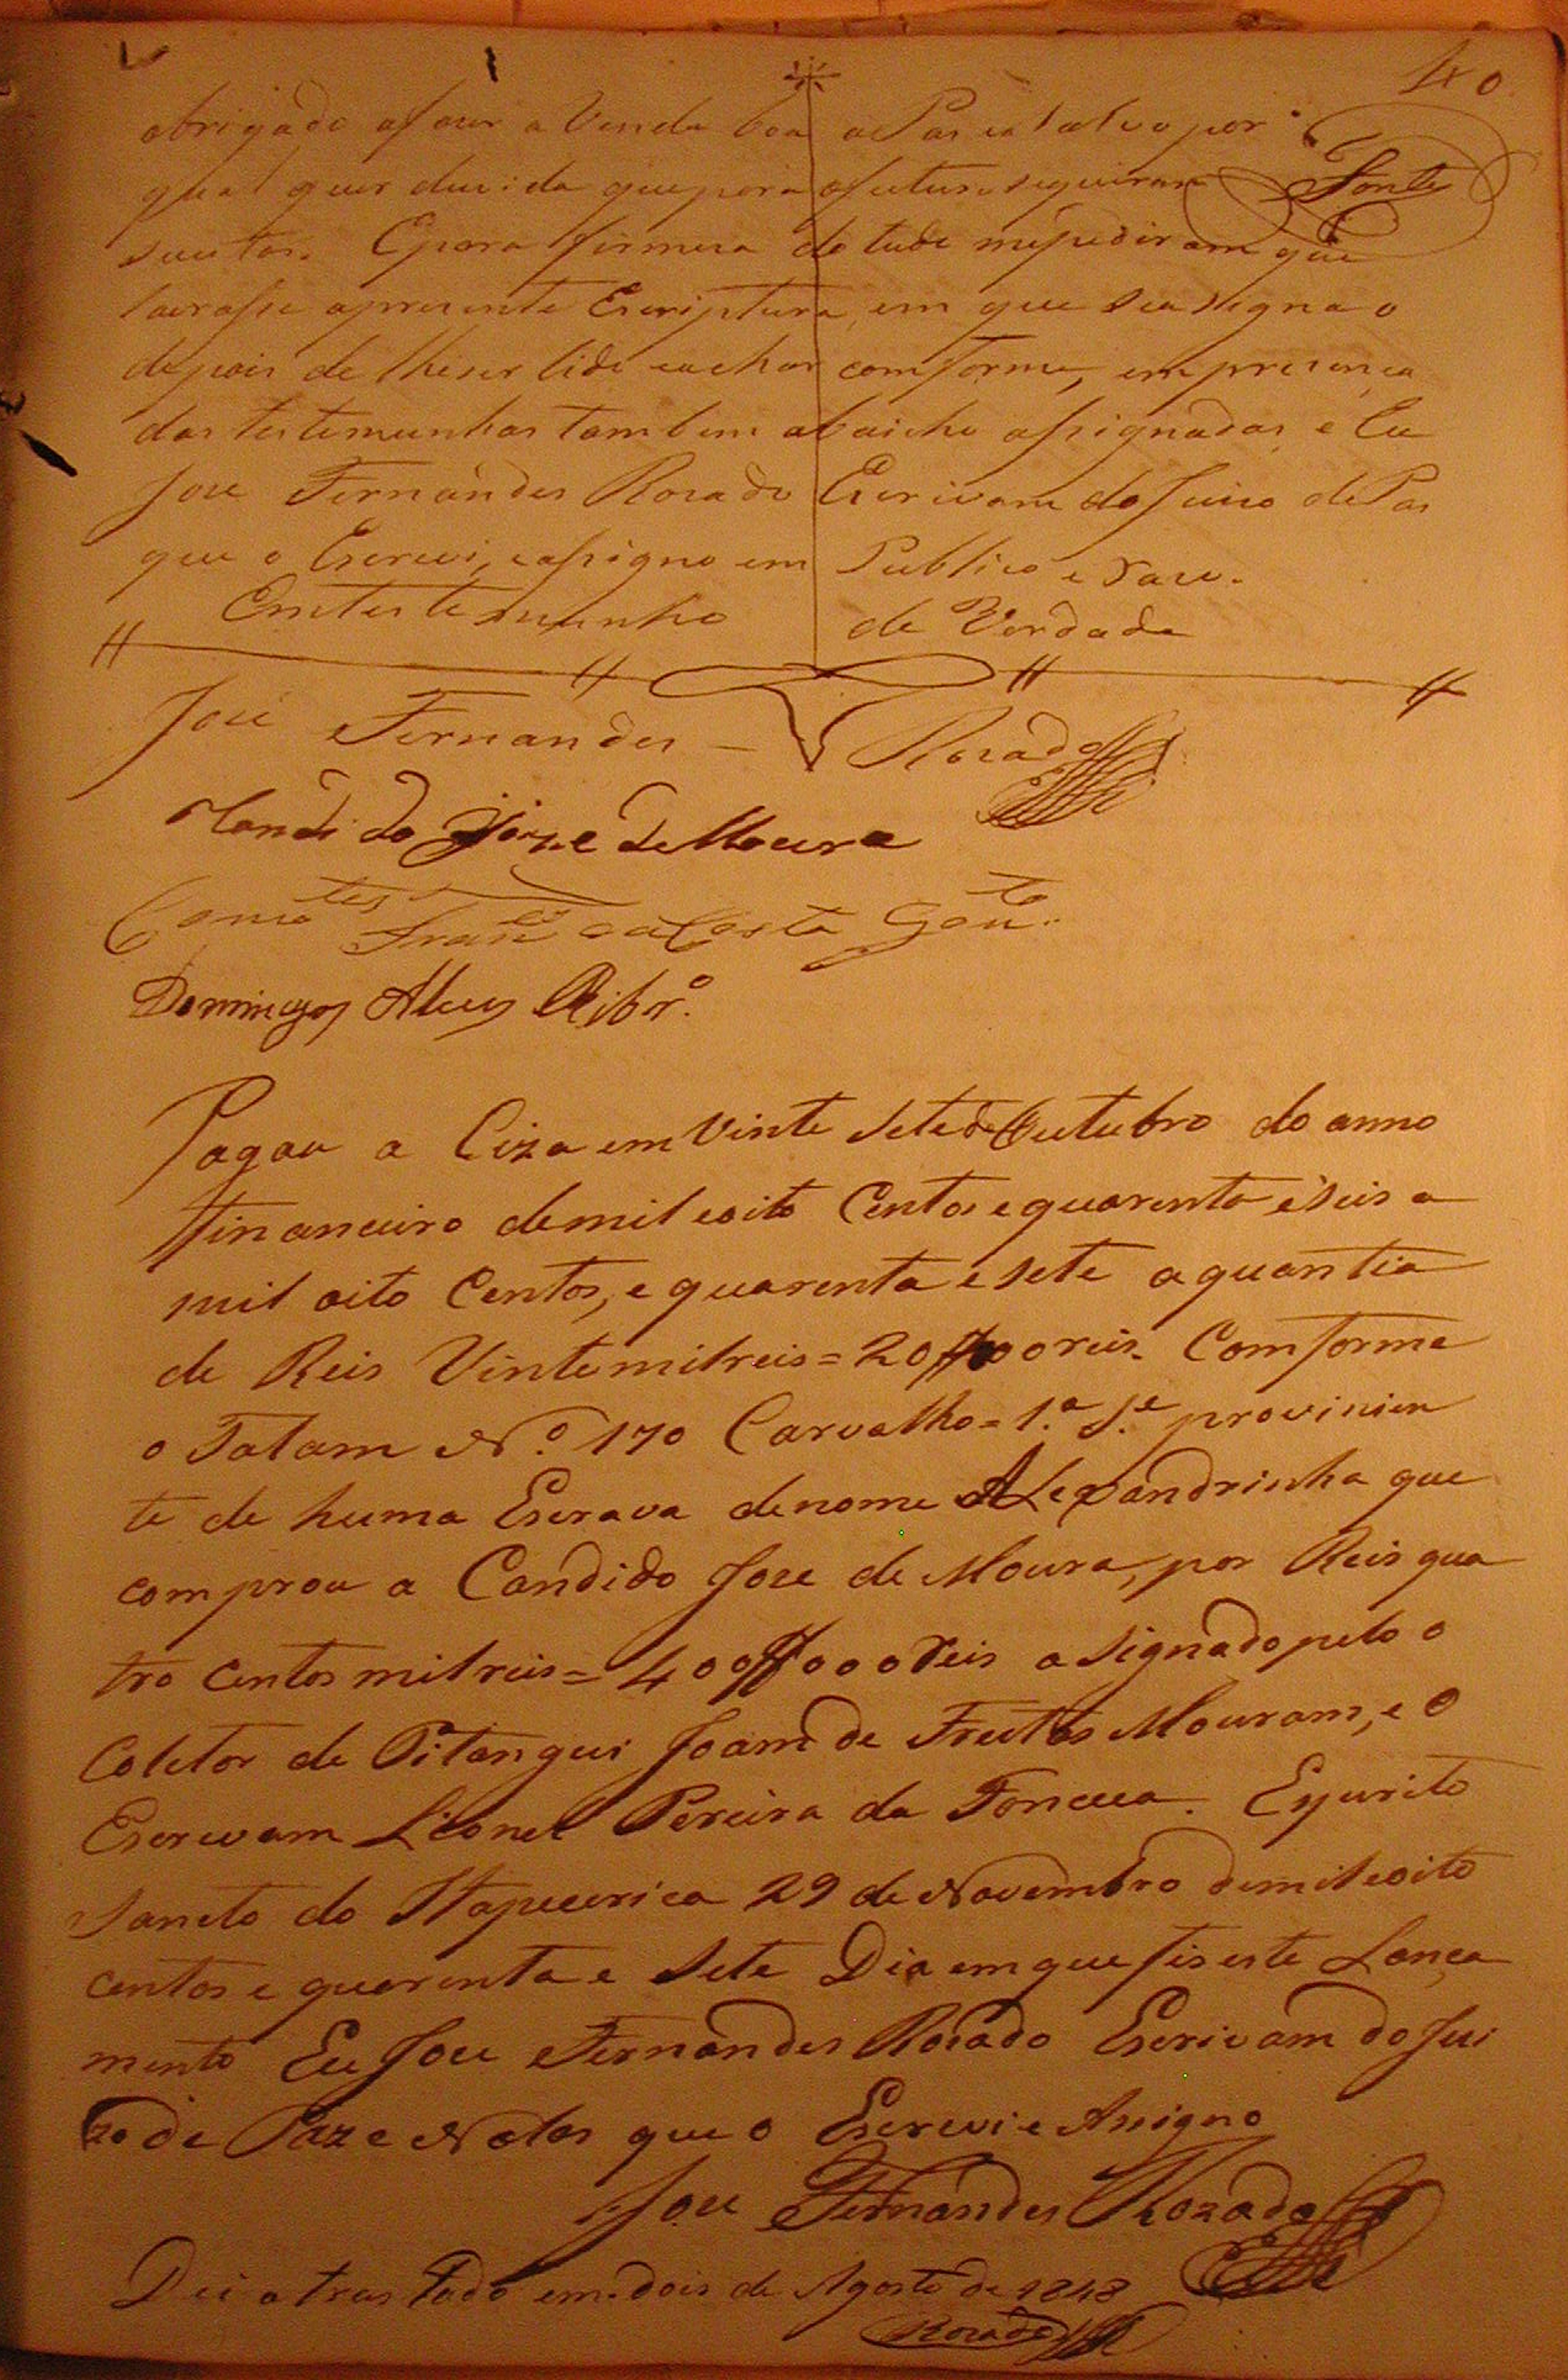 40
obrigado afaser a Venda boa a Pas e a salvo por
Fonte
qual quer duvida que pera ofuturo seguiram
suutar. Epara firmesa de tudo mepediram que
lavrasse apresente Escriptura, em que seasigna o
depois de lheser lido eachar comforme, empresença
das testemunhas tambem abaicho assignadas, e Eu
Jose Fernandes Rosado Escrivam do Juiso de Pas
que o Escrevi, eassigno em Publico e Raso.
Emtestemunho de Verdade
José Fernandes - Rosado
Candido Joze de Moura
Como tes Franco da Costa Gonto
Domingos Alves Ribro.
Pagou a Ciza em Vinte Setede Outubro do anno
ffinanceiro demil eoito Centos e quarenta e seis a
mil oito Centos, e quarenta e sete aquantia
de Reis Vinte mil reis = 20$000 reis. Comforme
o Talam No. 170 Carvalho = 1.a S.e provinien
te de huma Escrava denome Alexandrinha que
comprou a Candido Jose de Moura, por Reis qua
tro Centos mil reis = 400$000 Reis asignado pelo o
Coletor de Pitangui Joam de Freitas Mouram, e O
Escrivam Lionel Pereira da Fonceca. Espirito
Sancto do Itapecerica 29 de Novembro demil eoito
centos e quarenta e Sete Dia emque fis este Lança
mento Eu Jose Fernandes Rosado Escrivam do Jui
zo de Paz e Notas que o Escrevi e Assigno
Jose Fernandes Rozado
Dei o tras lado em dois de Agosto de 1848
Rosado